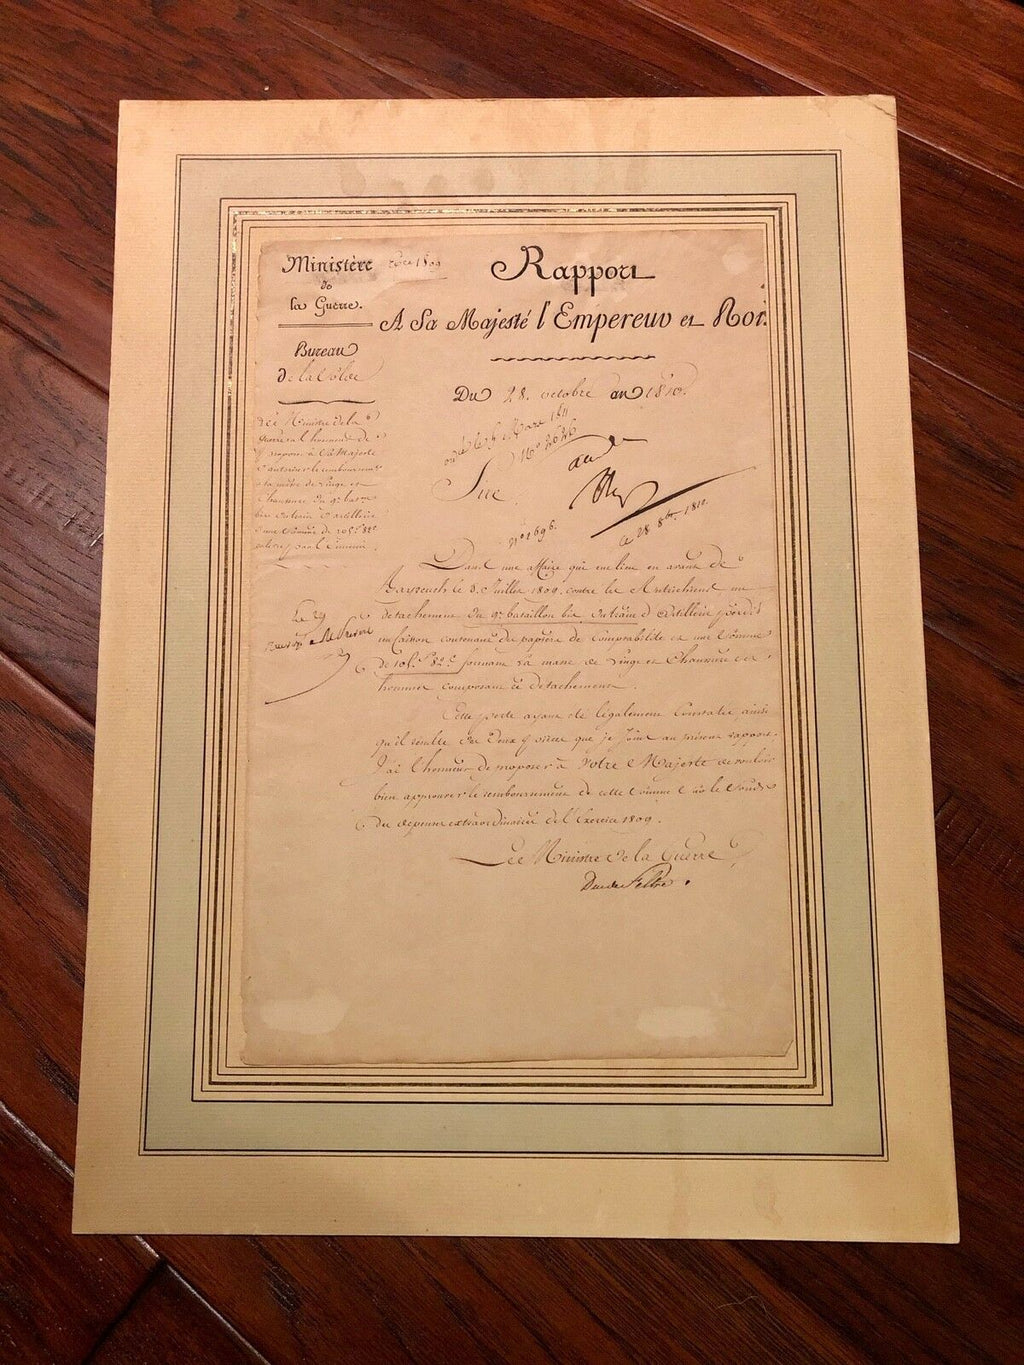 Ministère
de
la Guerre.
Bureau
de la Solde
1809
Rapport
A Sa Majesté l'Empereur et Roi.
Du 28. octobre an 1810.
Le Ministre de la
Guerre a l'honneur de
proposer à Sa Majesté
d'autoriser le remboursement
à la masse de linge et
chaussure du 9e bataillon
bis du train d'artillerie
d'une somme de 105f. 82c.
enlevée par l'ennemi.
Mars 1811
No 2626
Sire
No 1696.
le 28 8bre 1810.
Dans une affaire qui eut lieu en avant de
Bayreuth le 8 Juillet 1809. contre les Autrichiens un
détachement du 9e bataillon bis du train d'artillerie perdit
un caisson contenant des papiers de comptabilité et une somme
de 105f. 82c. formant la masse de linge et chaussure des
hommes composant ce détachement.
Cette perte ayant été légalement constatée ainsi
qu'il résulte des deux pièces que je joins au présent rapport,
J'ai l'honneur de proposer à Votre Majesté de vouloir
bien approuver le remboursement de cette somme sur le fonds
des dépenses extraordinaires de l'Exercice 1809.
Le 29
Le Ministre de la Guerre
Duc de Feltre.